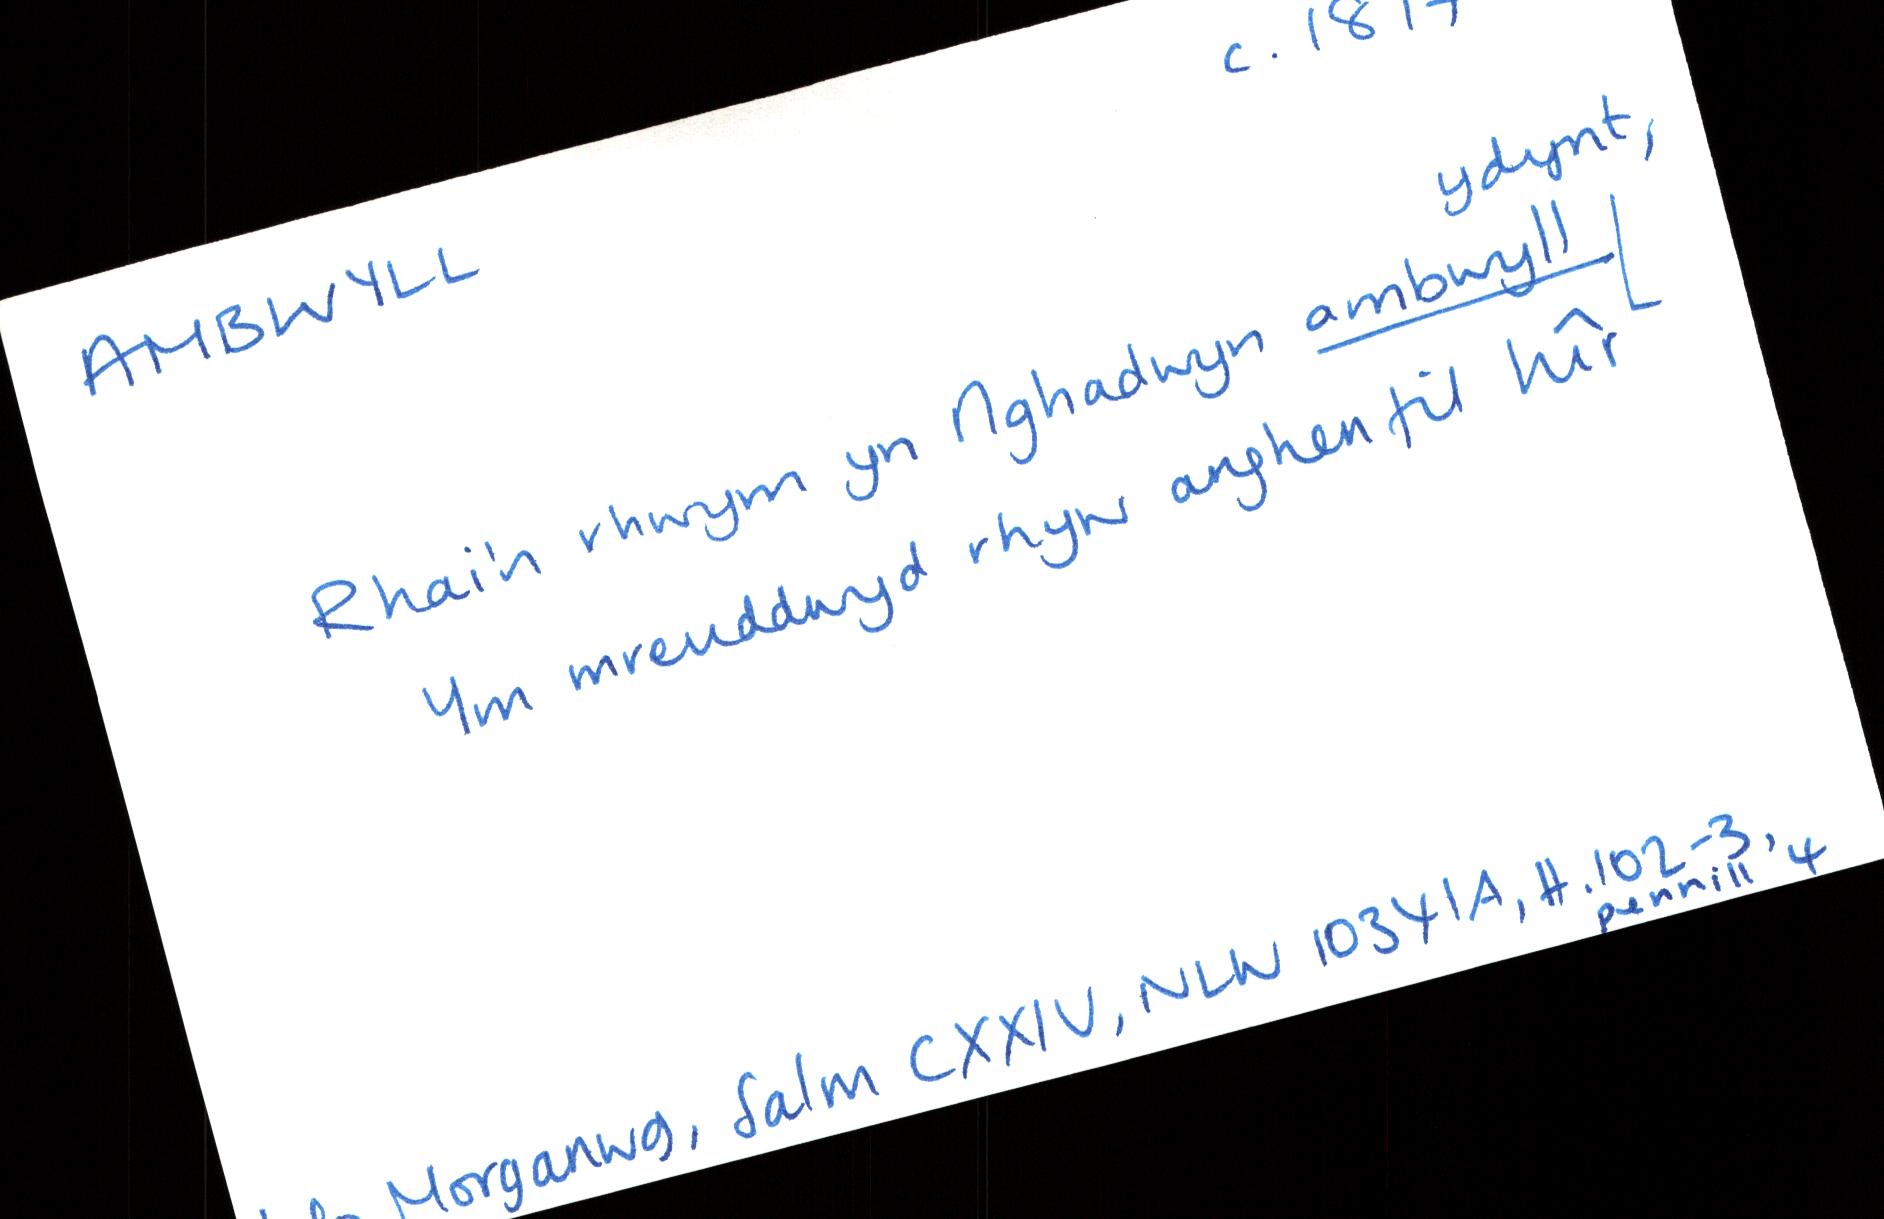 c. 1817
AMBWYLL
ydynt,
Rhai'n rhwym yn Nghadwyn ambwyll [
Ym mreuddwyd rhyw anghenfil hîr
Morganwg, Salm CXXIV, NLW 10341A, ff.102-3,
pennill 4